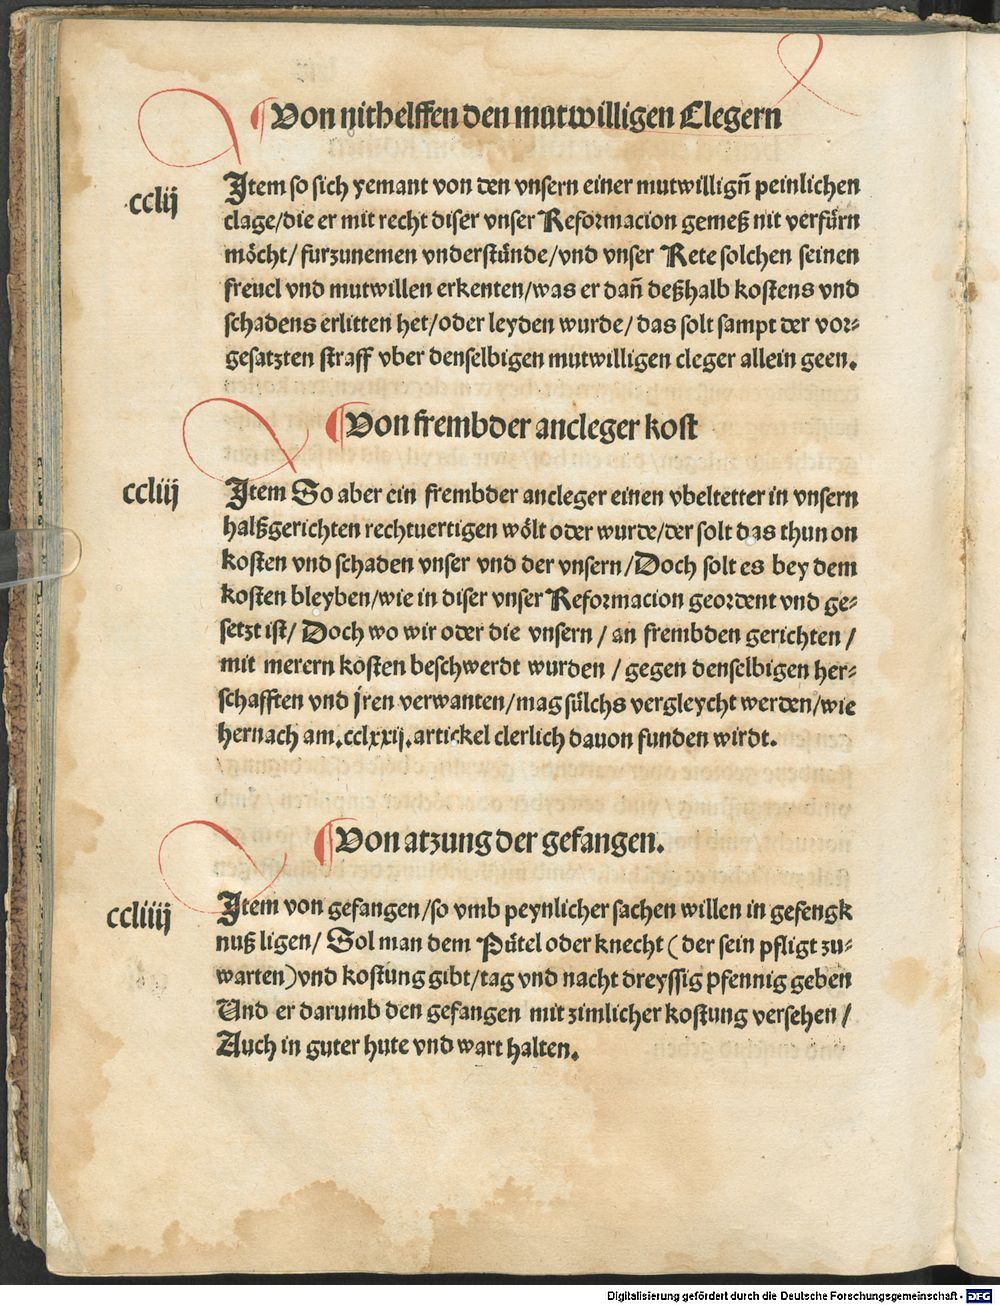 Von nithelffen den mutwilligen Clegern
cclij
Item so sich yemant von den vnsern einer mutwilligñ peinlichen
clage/die er mit recht diser vnser Reformacion gemeß nit verfürn
möcht/ furzunemen vnderstünde/vnd vnser Rete solchen seinen
freuel vnd mutwillen erkenten/was er dañ deßhalb kostens vnd
schadens erlitten het/oder leyden wurde/das solt sampt der vor⸗
gesatzten straff vber denselbigen mutwilligen cleger allein geen.
Von frembder ancleger kost
ccliij
Item So aber ein frembder ancleger einen vbeltetter in vnsern
halßgerichten rechtuertigen wölt oder wurde/der solt das thun on
kosten vnd schaden vnser vnd der vnsern/Doch solt es bey dem
kosten bleyben/wie in diser vnser Reformacion geordent vnd ge⸗
setzt ist/ Doch wo wir oder die vnsern / an frembden gerichten /
mit merern kosten beschwerdt wurden / gegen denselbigen her⸗
schafften vnd jren verwanten/mag sülchs vergleycht werden/wie
hernach am.cclxxij.artickel clerlich dauon funden wirdt.
Von atzung der gefangen.
ccliiij
Item von gefangen/so vmb peynlicher sachen willen in gefengk
nuß ligen/ Sol man dem Pütel oder knecht (der sein pfligt zu⸗
warten)vnd kostung gibt/tag vnd nacht dreyssig pfennig geben
Vnd er darumb den gefangen mit zimlicher kostung versehen /
Auch in guter hute vnd wart halten.
Digitalisierung gefördert durch die Deutsche Forschungsgemeinschaft - DFG